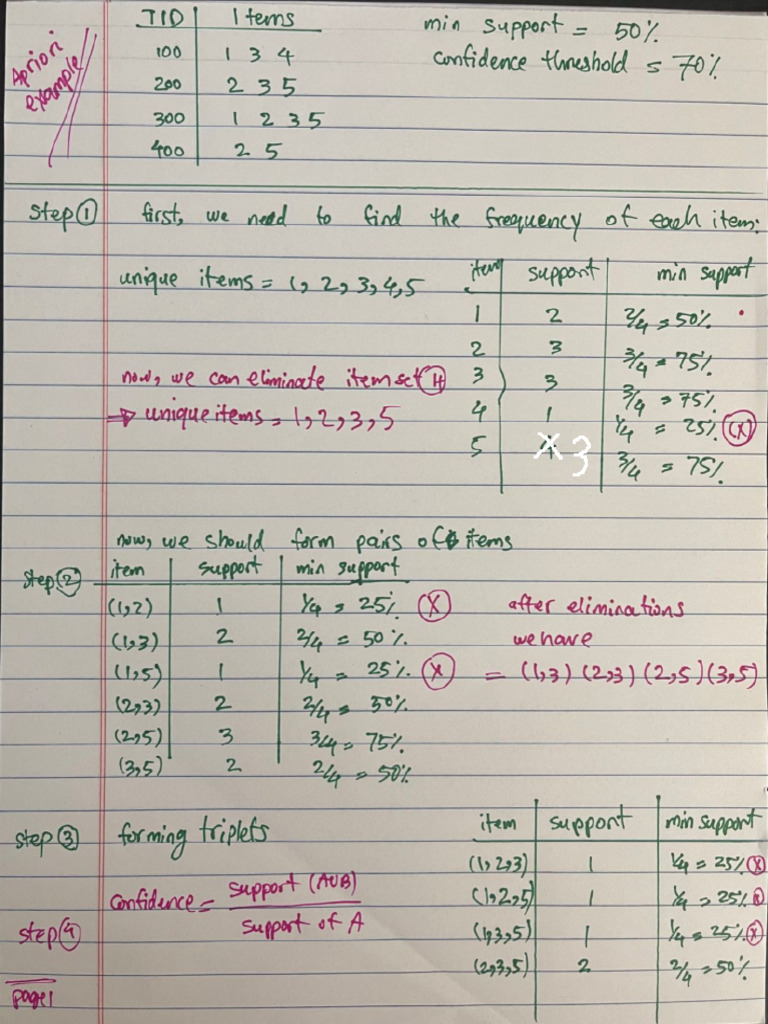 Apriori
example
TID Items
100 1 3 4
200 2 3 5
300 1 2 3 5
400 2 5
min support = 50%
confidence threshold = 70%
Step 1 first, we need to find the frequency of each item:
unique items = 1, 2, 3, 4, 5
item support min support
1 2 2/4 = 50%
2 3 3/4 = 75%
3 3 3/4 = 75%
4 1 1/4 = 25% (X)
5 3 3/4 = 75%
now, we can eliminate itemset 4
→ unique items = 1, 2, 3, 5
now, we should form pairs of items
Step 2
item support min support
(1,2) 1 1/4 = 25% (X)
(1,3) 2 2/4 = 50%
(1,5) 1 1/4 = 25% (X)
(2,3) 2 2/4 = 50%
(2,5) 3 3/4 = 75%
(3,5) 2 2/4 = 50%
after eliminations
we have
= (1,3) (2,3) (2,5) (3,5)
step 3 forming triplets
item support min support
(1,2,3) 1 1/4 = 25% (X)
(1,2,5) 1 1/4 = 25% (X)
(1,3,5) 1 1/4 = 25% (X)
(2,3,5) 2 2/4 = 50%
step 4
confidence = support (AUB)
support of A
page1